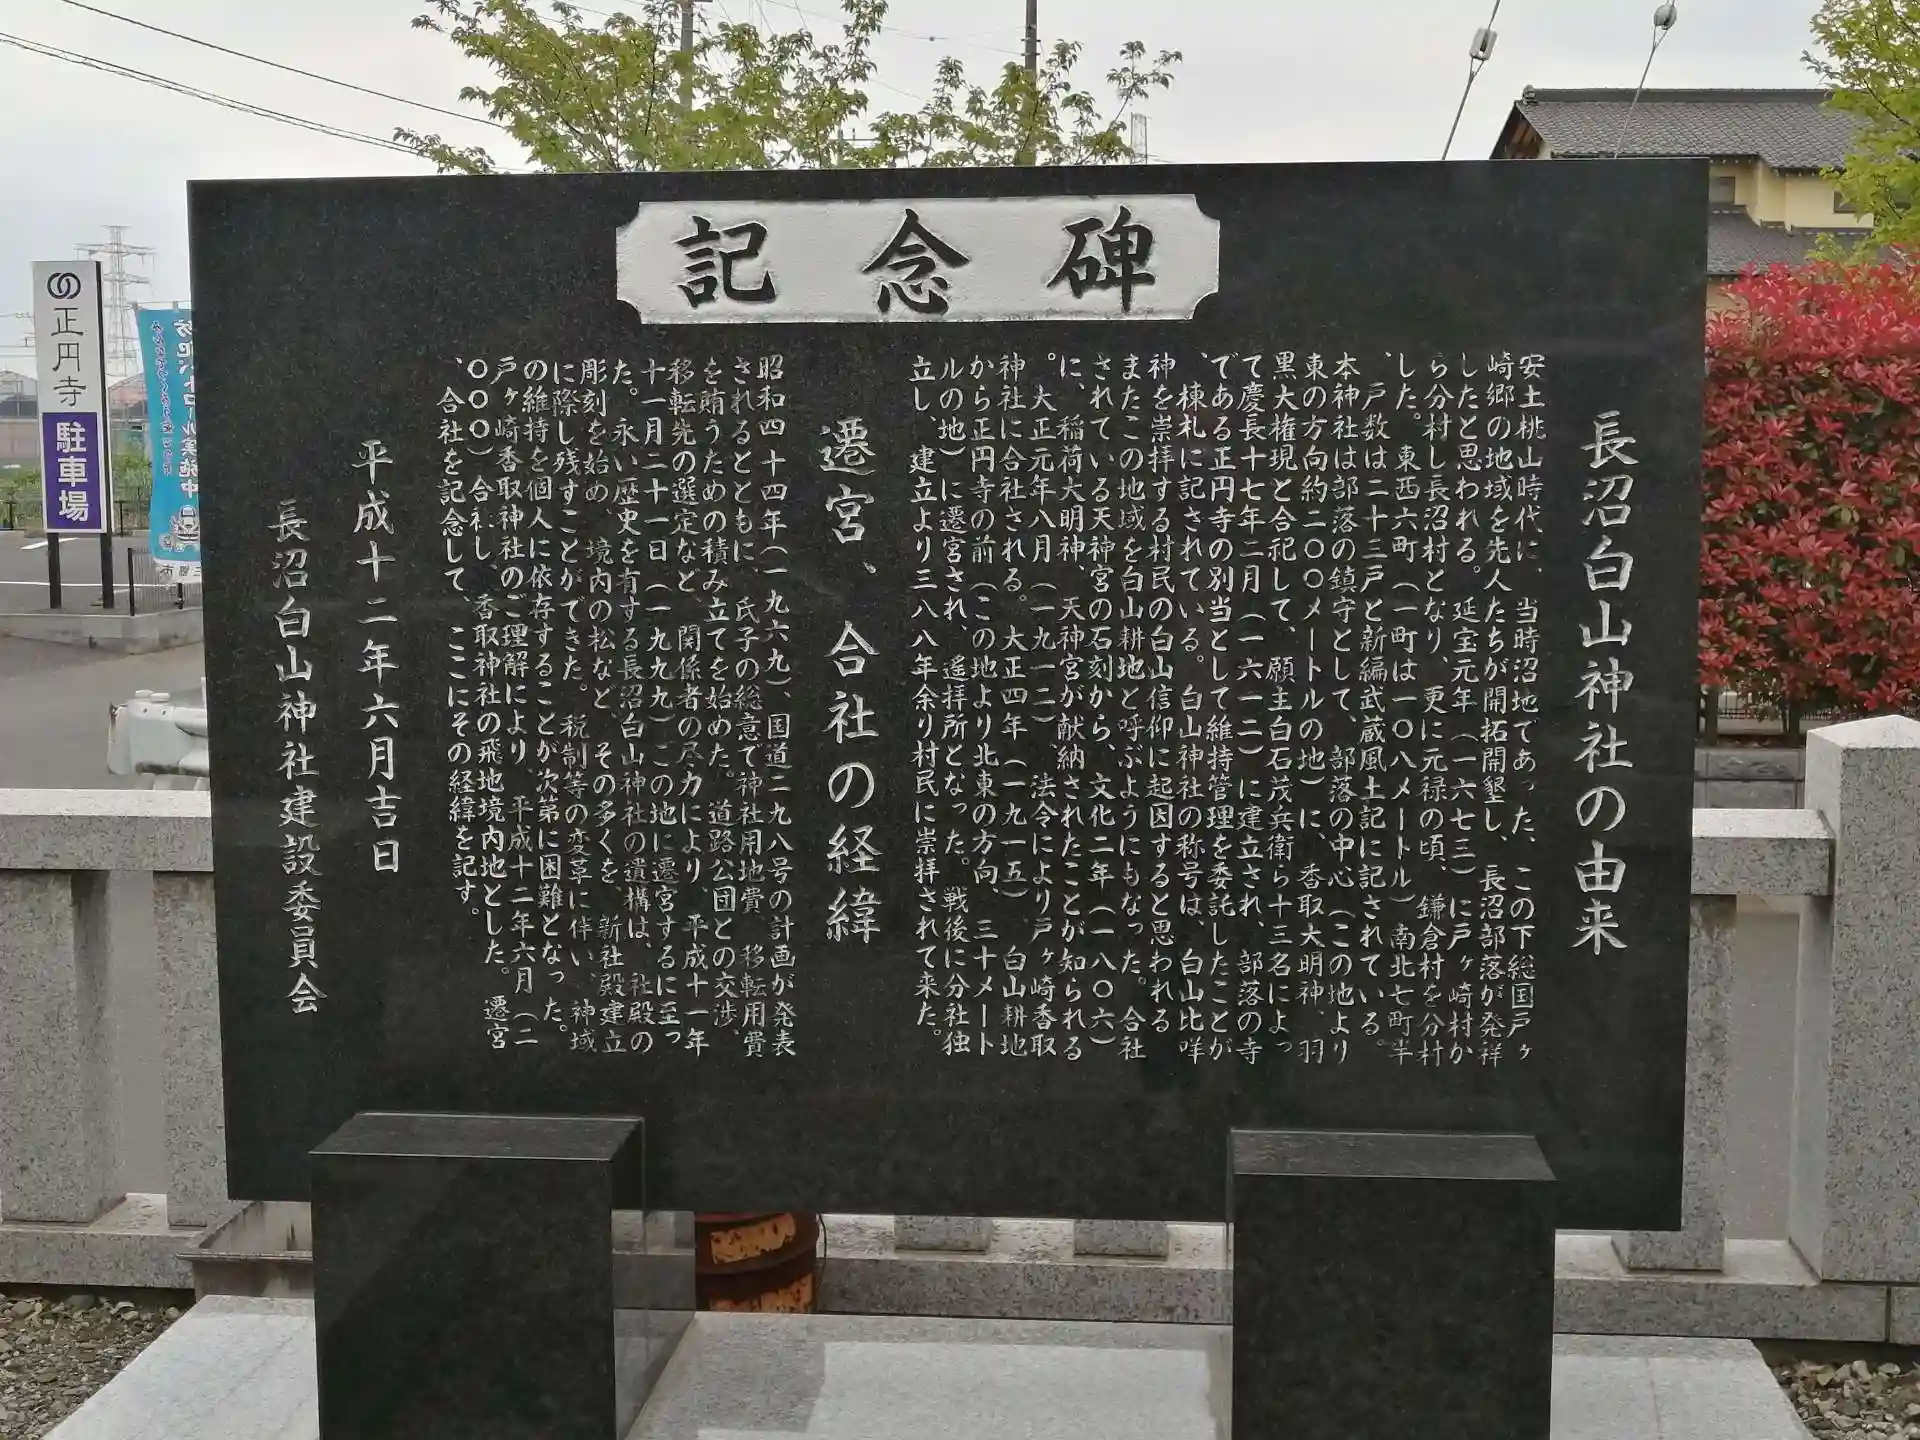 記念碑
長沼白山神社の由来
安土桃山時代に、当時沼地であった、この下総国戸ヶ
崎郷の地域を先人たちが開拓開墾し、長沼部落が発祥
したと思われる。延宝元年(一六七三)に戸ヶ崎村か
ら分村し長沼村となり、更に元禄の頃、鎌倉村を分村
した。東西六町(一町は一〇八メートル)南北七町半
、戸数は二十三戸と新編武蔵風土記に記されている。
本神社は部落の鎮守として、部落の中心(この地より
東の方向約二〇〇メートルの地)に、香取大明神、羽
黒大権現と合祀して、願主白石茂兵衛ら十三名によっ
て慶長十七年二月(一六一二)に建立され、部落の寺
である正円寺の別当として維持管理を委託したことが
、棟札に記されている。白山神社の称号は、白山比咩
神を崇拝する村民の白山信仰に起因すると思われる
またこの地域を白山耕地と呼ぶようにもなった。合社
されている天神宮の石刻から、文化二年(一八〇六)
に、稲荷大明神、天神宮が献納されたことが知られる
。大正元年八月(一九一二)、法令により戸ヶ崎香取
神社に合社される。大正四年(一九一五)、白山耕地
から正円寺の前(この地より北東の方向、三十メート
ルの地)に遷宮され、遥拝所となった。戦後に分社独
立し、建立より三八八年余り村民に崇拝されて来た。
遷宮、合社の経緯
昭和四十四年(一九六九)、国道二九八号の計画が発表
されるとともに、氏子の総意で神社用地費、移転用費
を賄うための積み立てを始めた。道路公団との交渉、
移転先の選定など、関係者の尽力により、平成十一年
十一月二十一日(一九九九)この地に遷宮するに至っ
た。永い歴史を有する長沼白山神社の遺構は、社殿の
彫刻を始め、境内の松など、その多くを、新社殿建立
に際し残すことができた。税制等の変革に伴い、神域
の維持を個人に依存することが次第に困難となった。
戸ヶ崎香取神社のご理解により、平成十二年六月(二
〇〇〇)合社し、香取神社の飛地境内地とした。遷宮
、合社を記念して、ここにその経緯を記す。
平成十二年六月吉日
長沼白山神社建設委員会
正円寺
駐車場